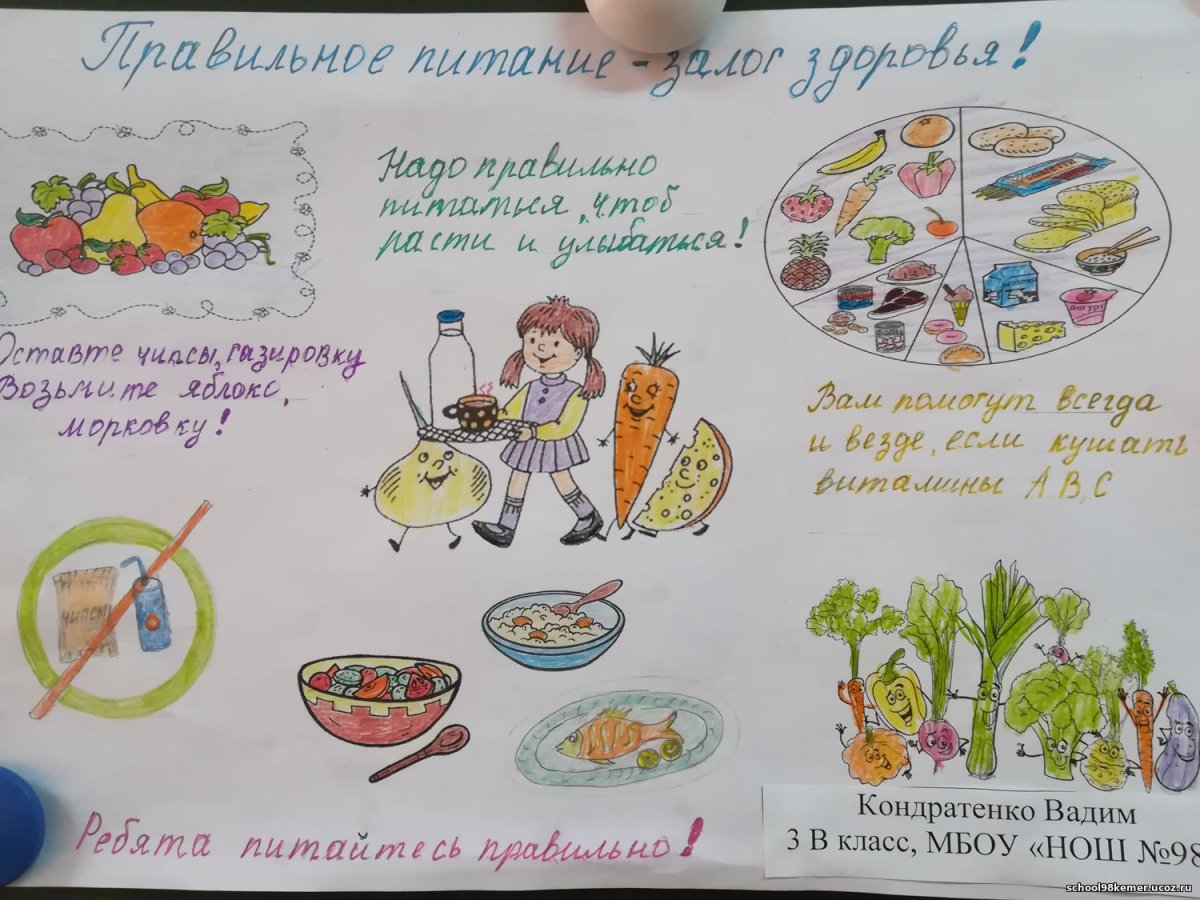 Правильное питание - залог здоровья!
Надо правильно
питаться, чтоб
расти и улыбаться!
Оставте чипсы, газировку
Возьмите яблоко,
морковку!
Вам помогут всегда
и везде, если кушать
витамины А, В, С
чипсы
йогурт
Ребята питайтесь правильно!
Кондратенко Вадим
3 В класс, МБОУ «НОШ №98
school98kemer.ucoz.ru